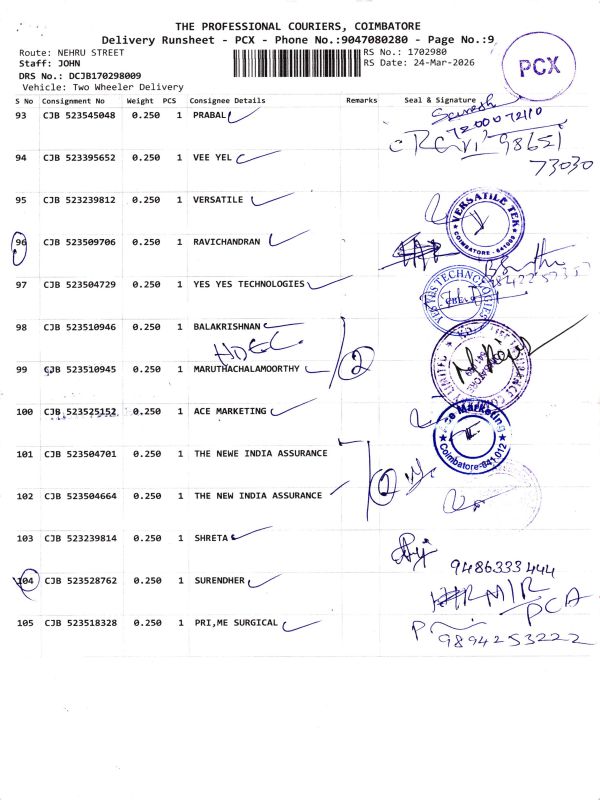 THE PROFESSIONAL COURIERS, COIMBATORE
Delivery Runsheet - PCX - Phone No.:9047080280 - Page No.:9
Route: NEHRU STREET RS No.: 1702980
Staff: JOHN RS Date: 24-Mar-2026
DRS No.: DCJB170298009
Vehicle: Two Wheeler Delivery
PCX
S No Consignment No Weight PCS Consignee Details Remarks Seal & Signature
93 CJB 523545048 0.250 1 PRABAL
7200072110
98651
73030
94 CJB 523395652 0.250 1 VEE YEL
95 CJB 523239812 0.250 1 VERSATILE
VERSATILE TEK
COIMBATORE - 641009
96 CJB 523509706 0.250 1 RAVICHANDRAN
97 CJB 523504729 0.250 1 YES YES TECHNOLOGIES
98 CJB 523510946 0.250 1 BALAKRISHNAN
HDFC
99 CJB 523510945 0.250 1 MARUTHACHALAMOORTHY
2
100 CJB 523525152 0.250 1 ACE MARKETING
Ace Marketing
Coimbatore-641 012
101 CJB 523504701 0.250 1 THE NEWE INDIA ASSURANCE
2
102 CJB 523504664 0.250 1 THE NEW INDIA ASSURANCE
103 CJB 523239814 0.250 1 SHRETA
9486333444
104 CJB 523528762 0.250 1 SURENDHER
MIR
PCA
105 CJB 523518328 0.250 1 PRI,ME SURGICAL
9894253222